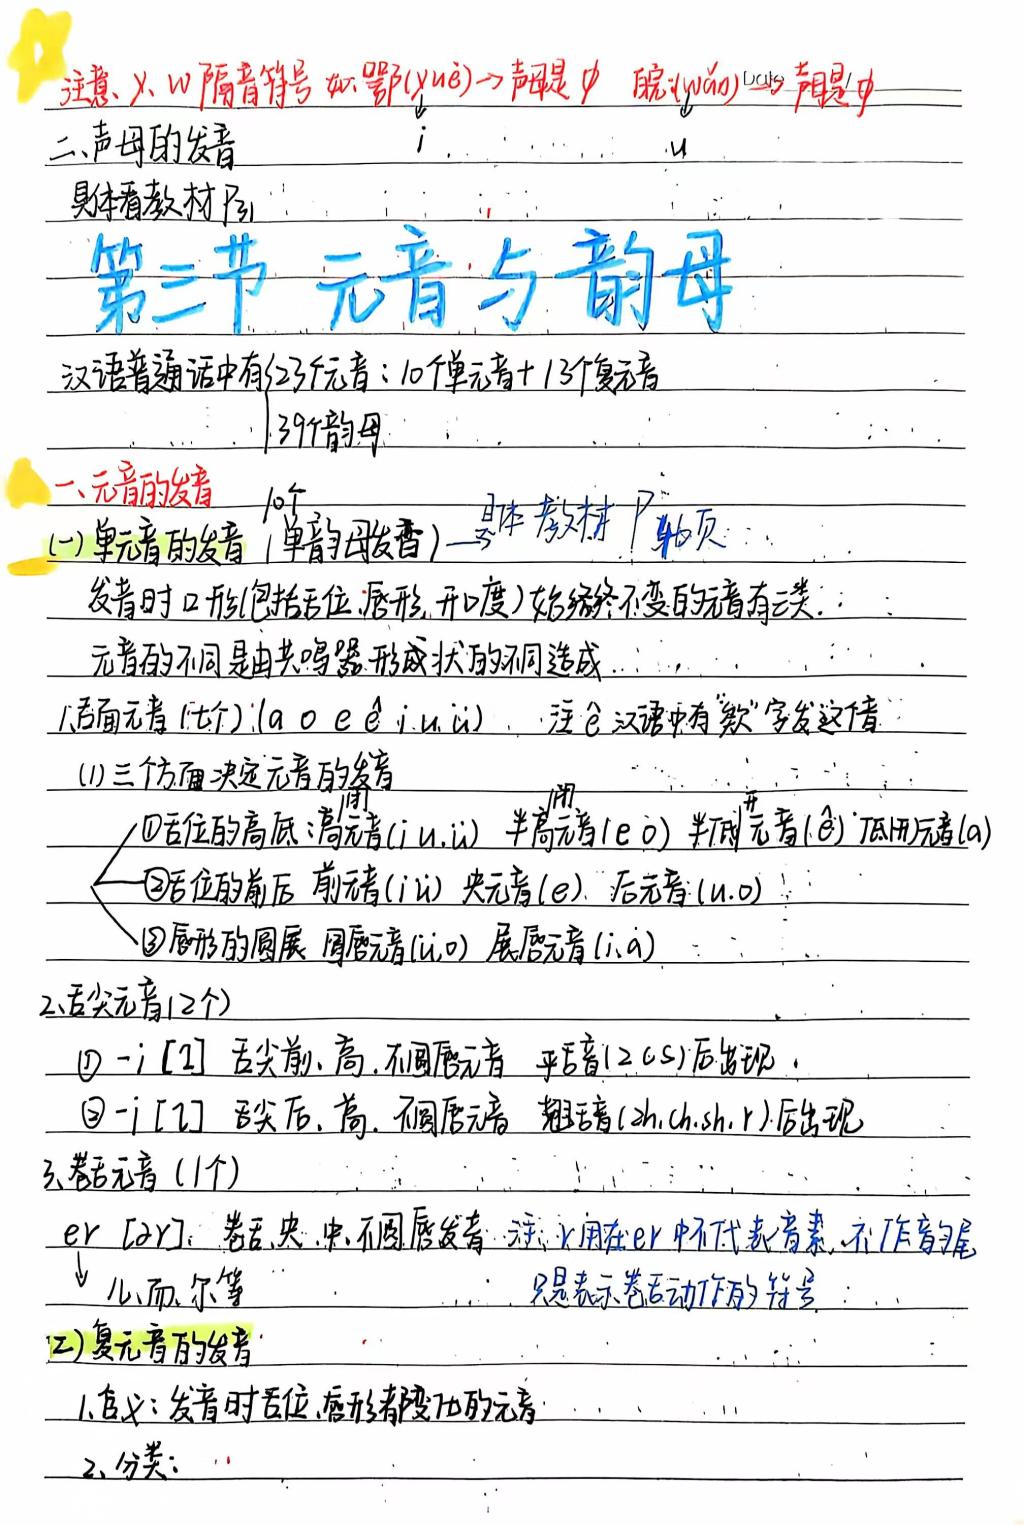 注意、y、w隔音符号 如:鄂(yuè)→声母是φ 皖:(wǎn)→声母是φ
Date
i u
二、声母的发音
具体看教材P31
第三节 元音与韵母
汉语普通话中有{23个元音:10个单元音+13个复元音
39个韵母
一、元音的发音
10个
(一)单元音的发音(单韵母发音)→具体教材P 页
发音时口形(包括舌位、唇形、开口度)始终不变的元音有三类.
元音的不同是由共鸣器形状的不同造成.
1.舌面元音(七个)(a o e ê i u ü) 注ê汉语中有"欸"字发这个音
(1)三个方面决定元音的发音
①舌位的高低:高(闭)元音(i u ü) 半高(闭)元音(e o) 半低(开)元音(ê) 低(开)元音(a)
②舌位的前后 前元音(i ü) 央元音(e) 后元音(u.o)
③唇形的圆展 圆唇元音(ü,o) 展唇元音(i,a)
2.舌尖元音(2个)
①-i[ɿ] 舌尖前、高、不圆唇元音 平舌音(z c s)后出现.
②-i[ʅ] 舌尖后、高、不圆唇元音 翘舌音(zh.ch.sh.r)后出现
3.卷舌元音(1个)
er [ər]. 卷舌、央、中、不圆唇发音 注:r用在er中不代表音素,不作音的尾
↓儿、而、尔等 只是表示卷舌动作的符号
(二)复元音的发音
1.定义:发音时舌位、唇形都变化的元音
2.分类: